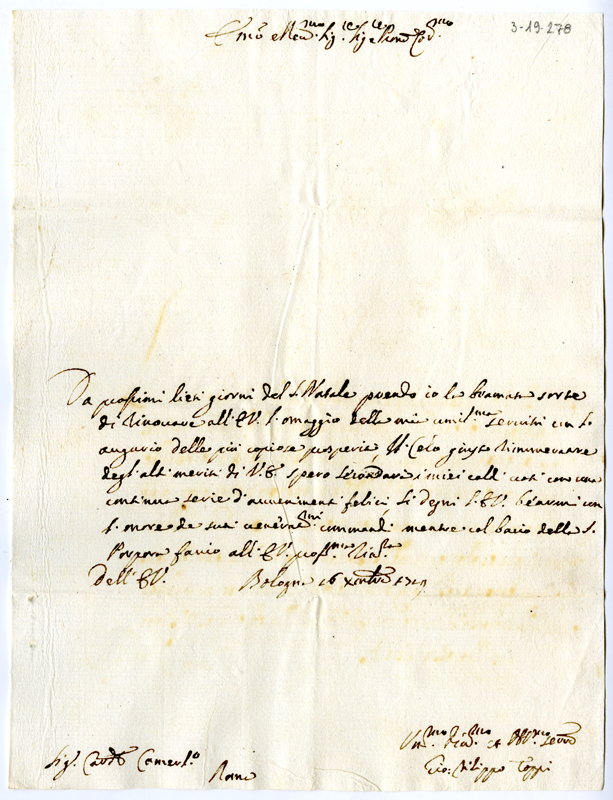 3-19-278
Em.o e Rev.mo Sig.re Sig.re Pron Col.mo
Da prossimi lieti giorni del S. Natale prendo io la bramata sorte
di rinovare all'E.V. l'omaggio della mia umil.ma servitù con l'
augurio delle più copiose prosperità. Il Cielo giusto rimuneratore
degl'alti meriti di V.E. spero seconderà i miei caldi voti con una
continua serie d'avvenimenti felici. Si degni l'E.V. bearmi con
l'onore de suoi venerat.mi comandi mentre col bacio della S.
Porpora faccio all'E.V. prof.ma river.za
Dell'E.V. Bologna 16 Xmbre 1719
Um.mo Div.mo et Obl.mo Serv.e
Sig.r Card. Camerl.o Roma
Gio. Filippo Toppi